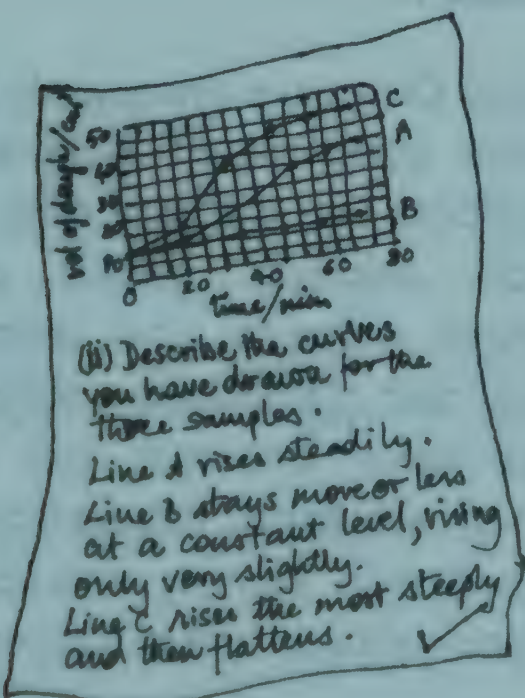 C
A
B
50
40
30
20
10
vol of dough/cm³
0 20 40 60 80
time/min
(ii) Describe the curves
you have drawn for the
three samples.
Line A rises steadily.
Line B stays more or less
at a constant level, rising
only very slightly.
Line C rises the most steeply
and then flattens.